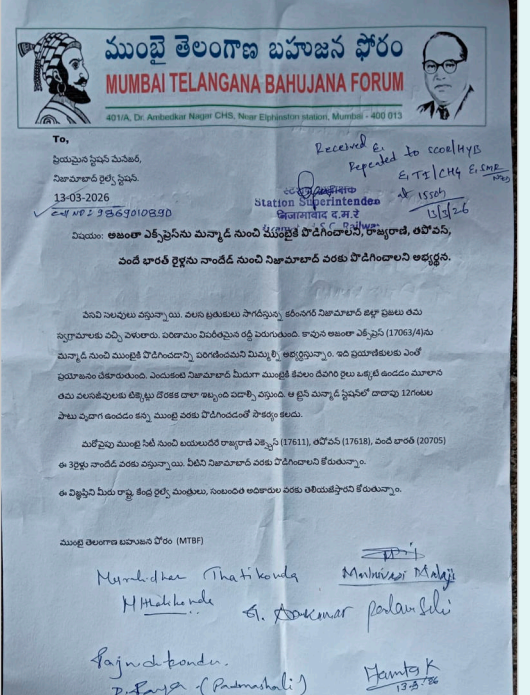 ముంబై తెలంగాణ బహుజన ఫోరం
MUMBAI TELANGANA BAHUJANA FORUM
401/A, Dr. Ambedkar Nagar CHS, Near Elphinston station, Mumbai - 400 013
To,
ప్రియమైన స్టేషన్ మేనేజర్,
నిజామాబాద్ రైల్వే స్టేషన్.
13-03-2026
Cell No: 9869010890
Received &
Repeated to SCOR/HYB
& TI/CHG & SMR
at 1550h
13/3/26
Station Superintendent
निजामाबाद द.म.रे
విషయం: అజంతా ఎక్స్‌ప్రెస్‌ను మన్మాడ్ నుంచి ముంబైకి పొడిగించాలని, రాజ్యరాణి, తపోవన్,
వందే భారత్ రైళ్లను నాందేడ్ నుంచి నిజామాబాద్ వరకు పొడిగించాలని అభ్యర్థన.
వేసవి సెలవులు వస్తున్నాయి. వలస బ్రతుకులు సాగదీస్తున్న కరీంనగర్ నిజామాబాద్ జిల్లా ప్రజలు తమ
స్వగ్రామాలకు వచ్చి వెళతారు. పరిణామం విపరీతమైన రద్దీ పెరుగుతుంది. కావున అజంతా ఎక్స్‌ప్రెస్ (17063/4)ను
మన్మాడ్ నుంచి ముంబైకి పొడిగించడాన్ని పరిగణించమని మిమ్మల్ని అభ్యర్థిస్తున్నాం. ఇది ప్రయాణికులకు ఎంతో
ప్రయోజనం చేకూరుతుంది. ఎందుకంటే నిజామాబాద్ మీదుగా ముంబైకి కేవలం దేవగిరి రైలు ఒక్కటే ఉండడం మూలాన
తమ వలసజీవులకు టిక్కెట్లు దొరకక చాలా ఇబ్బంది పడాల్సి వస్తుంది. ఆ ట్రైన్ మన్మాడ్ స్టేషన్‌లో దాదాపు 12గంటల
పాటు వృధాగ ఉండడం కన్న ముంబై వరకు పొడిగించడంతో సౌకర్యం కలదు.
మరోవైపు ముంబై సిటీ నుంచి బయలుదేరే రాజ్యరాణి ఎక్స్ప్రెస్ (17611), తపోవన్ (17618), వందే భారత్ (20705)
ఈ 3రైళ్లు నాందేడ్ వరకు వస్తున్నాయి. వీటిని నిజామాబాద్ వరకు పొడిగించాలని కోరుతున్నాం.
ఈ విజ్ఞప్తిని మీరు రాష్ట్ర, కేంద్ర రైల్వే మంత్రులు, సంబంధిత అధికారుల వరకు తెలియజేస్తారని కోరుతున్నాం.
ముంబై తెలంగాణ బహుజన ఫోరం (MTBF)
Murlidhar Thatikonda
G. Arkumar
(Padmashali)
Mamta K